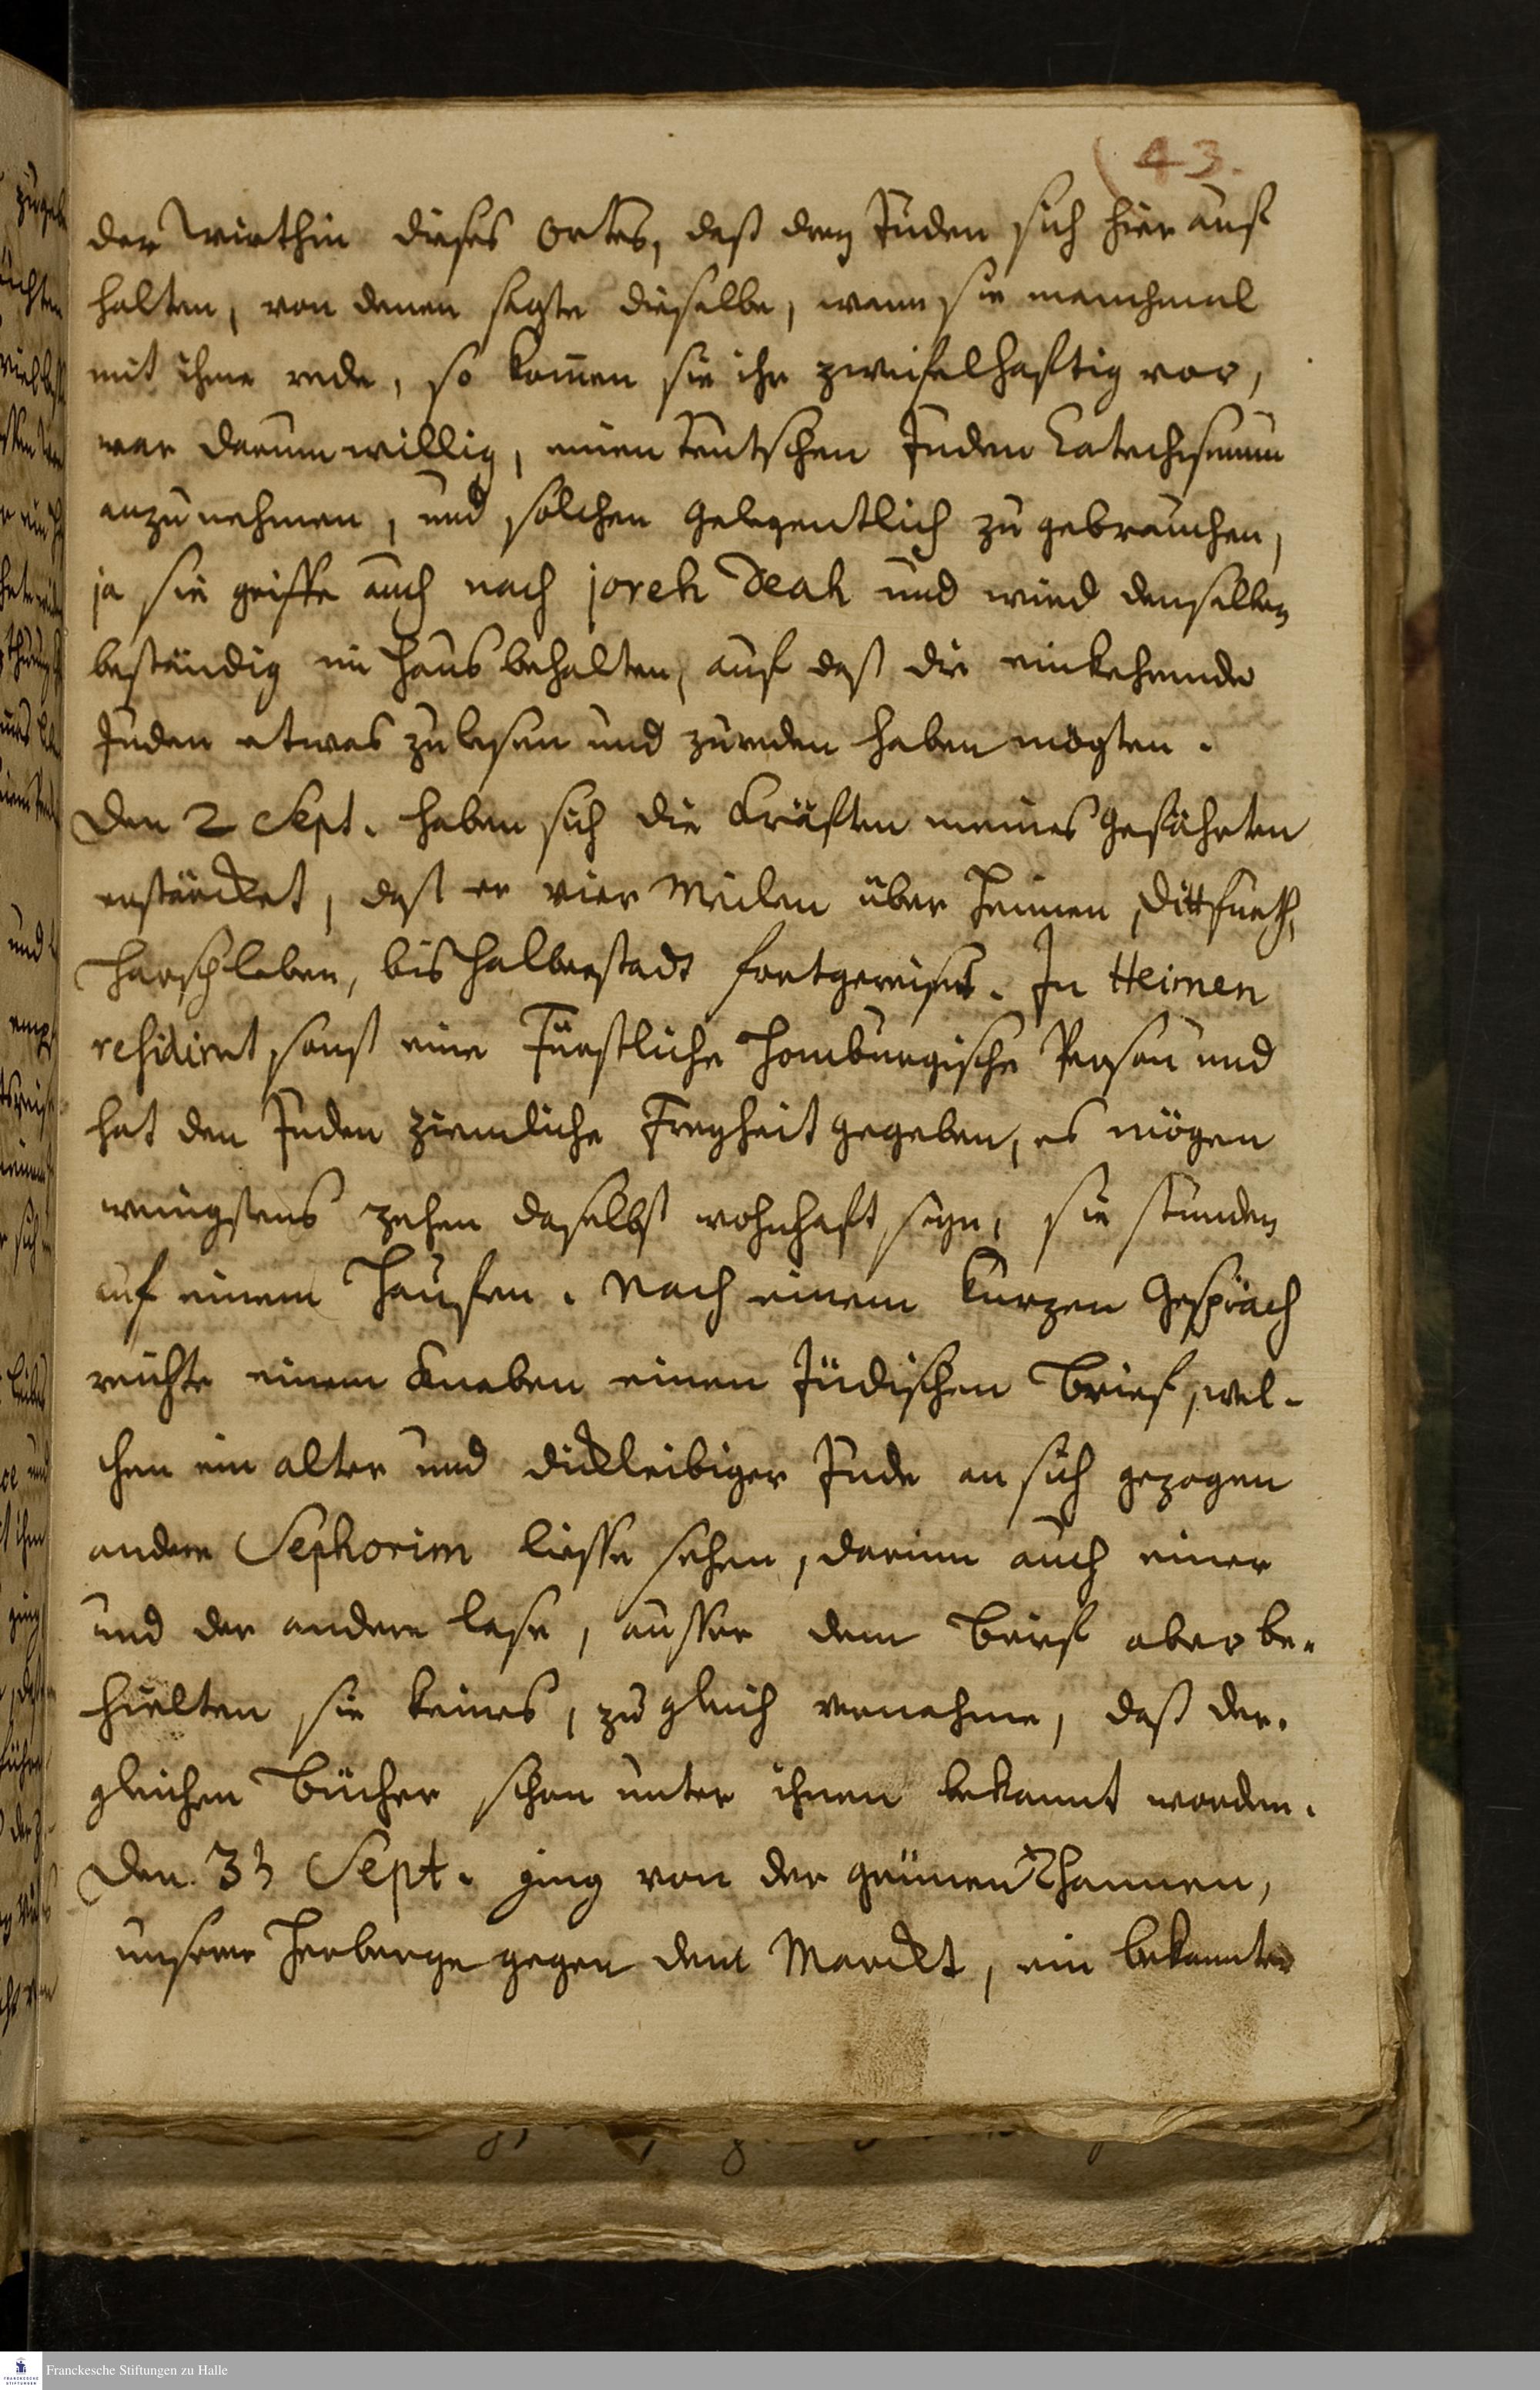 (43.
der Wirthin dieses Ortes, daß drey Juden sich hier auf
halten, von denen sagte dieselbe, wann sie manchmal
mit ihme rede, so kom̄en sie ihr zweifelhafftig vor,
war darum willig, einen teutschen Juden Catechismum
anzunehmen, und solchen gelegentlich zu gebrauchen,
ja sie griffe auch nach joreh Deah und wird denselben
beständig im Haus behalten, auf daß die einkehrende
Juden etwas zu lesen und zu reden haben mögten.
Den 2 Sept. haben sich die Kräften meines Gefährten
erstärcket, daß er vier Meilen über Heimen, Dittfurth,
Harsleben, bis Halberstadt fortgereiset. In Heimen
residirt sonst eine Fürstliche Homburgische Person und
hat den Juden ziemliche Freyheit gegeben, es mögen
wenigstens zehen daselbst wohnhaft seyn, sie stunden
auf einem Hauffen. Nach einem kurzen Gespräch
reichte einem Knaben einen Jüdischen Brief, wel-
chen ein alter und dickleibiger Jude an sich gezogen
andere Sephorim liesse sehen, darinn auch einer
und der andere lase, ausser dem Brief aber be-
hielten sie keines, zu gleich vernahme, daß der-
gleichen Bücher schon unter ihnen bekannt worden.
Den 3t Sept. ging von der grünen Thannen,
unserer Herberge gegen dem Marckt, ein bekannter
Franckesche Stiftungen zu Halle